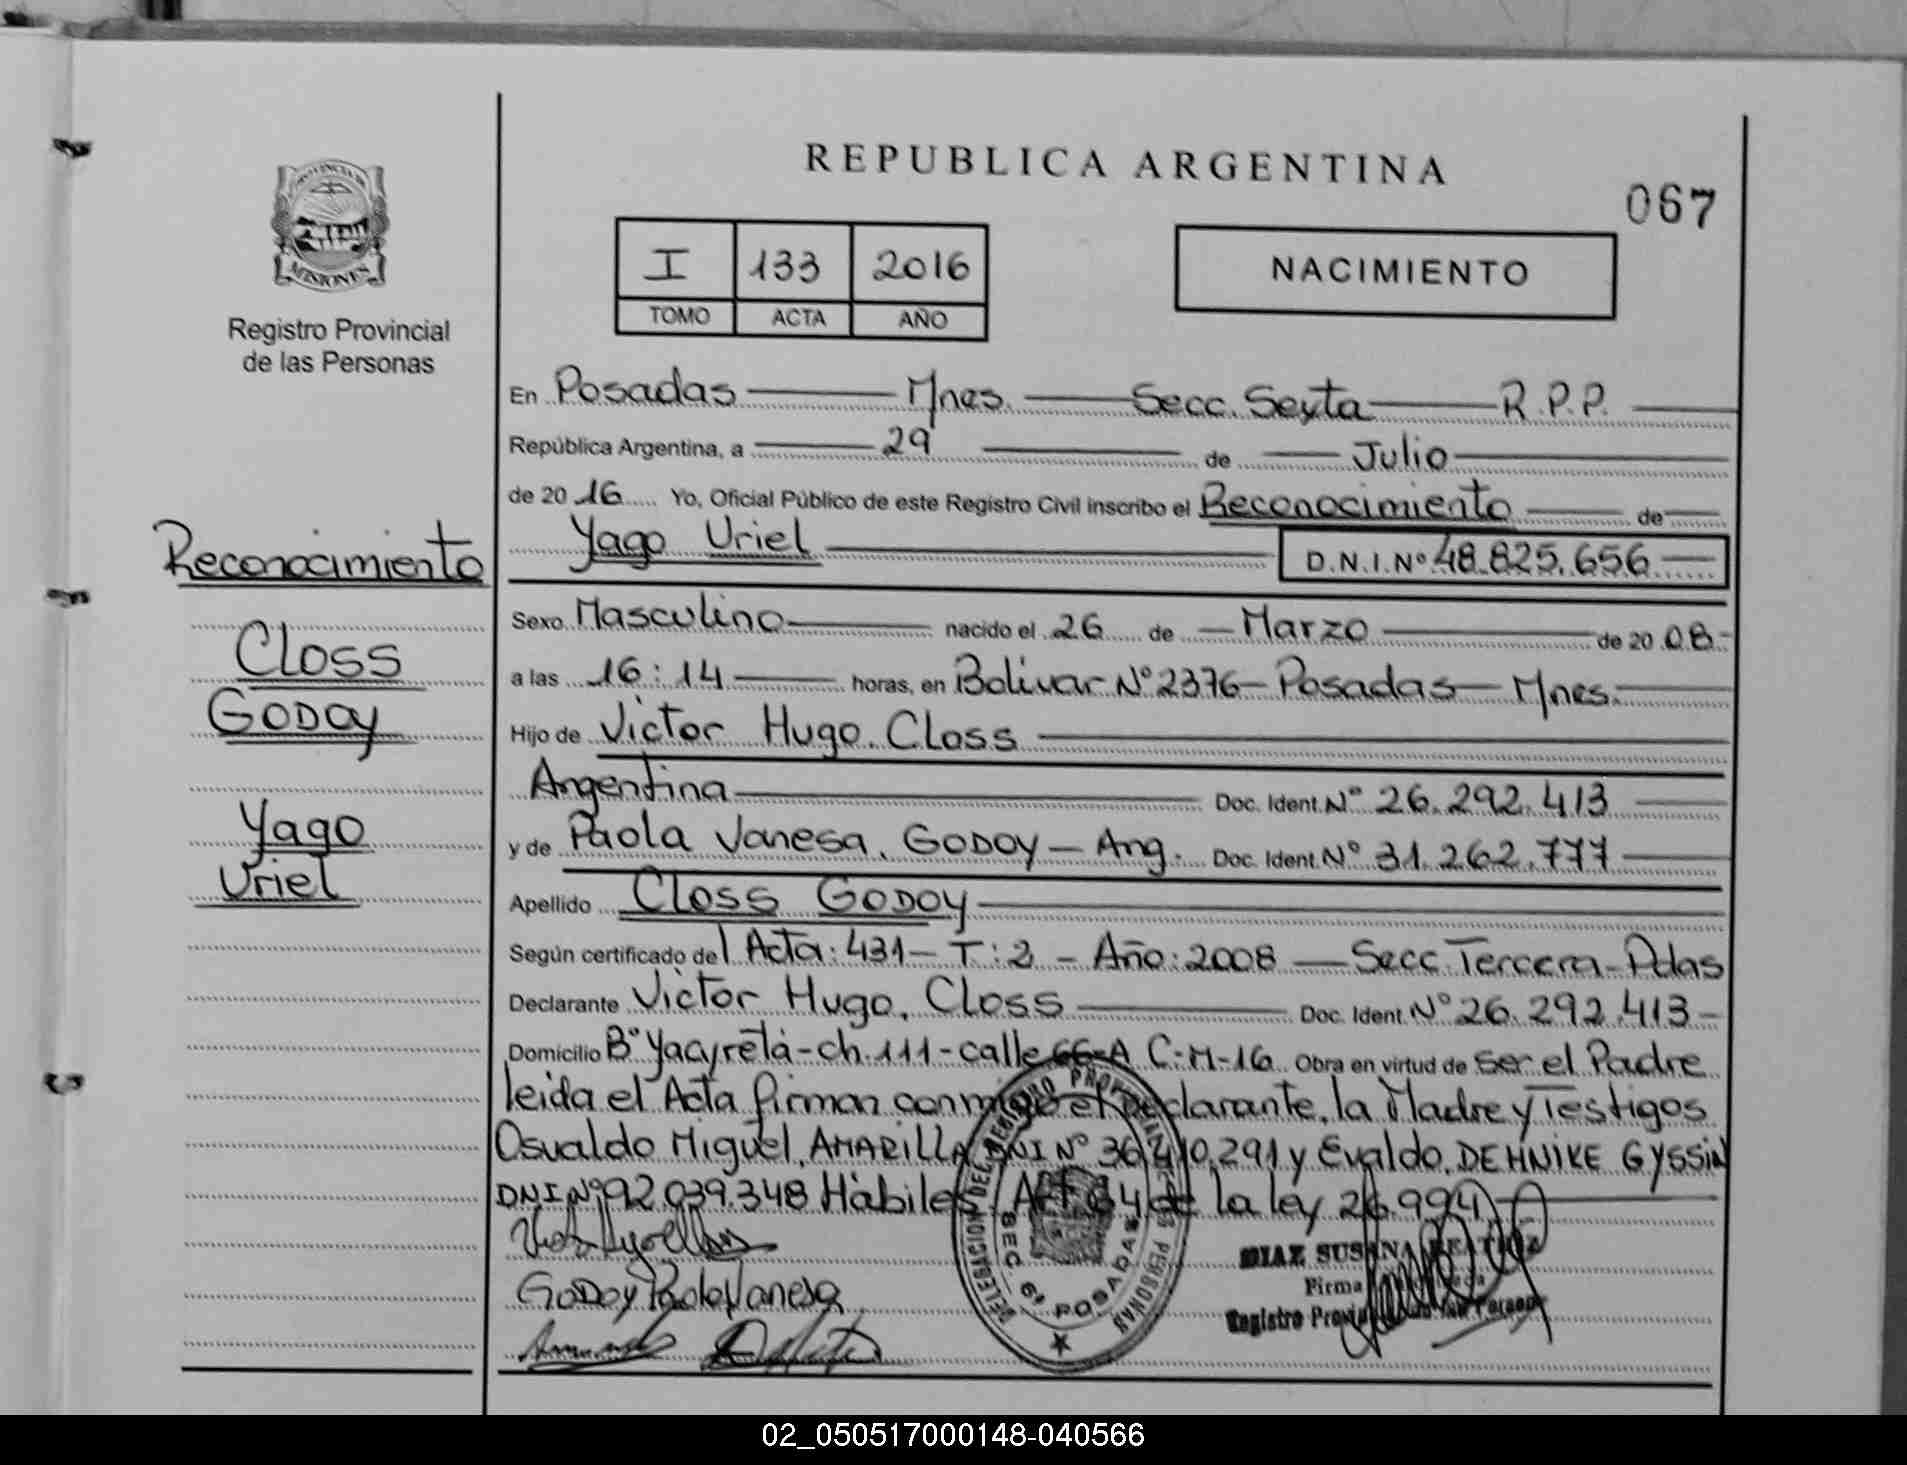 REPUBLICA ARGENTINA
067
I 133 2016
TOMO ACTA AÑO
NACIMIENTO
MISIONES
Registro Provincial
de las Personas
En Posadas Mnes. Secc. Sexta R.P.P.
República Argentina, a 29 de Julio
de 2016 Yo, Oficial Público de este Registro Civil inscribo el Reconocimiento de
Yago Uriel D.N.I. Nº 48.825.656
Reconocimiento
Closs
Godoy
Yago
Uriel
Sexo Masculino nacido el 26 de Marzo de 2008
a las 16:14 horas, en Bolivar Nº 2376 - Posadas - Mnes.
Hijo de Victor Hugo. Closs
Argentina Doc. Ident. Nº 26.292.413
y de Paola Vanesa. Godoy - Arg. Doc. Ident. Nº 31.262.777
Apellido Closs Godoy
Según certificado del Acta: 431 - T: 2 - Año: 2008 - Secc. Tercera - Pdas
Declarante Victor Hugo. Closs Doc. Ident. Nº 26.292.413
Domicilio Bº Yacyretá - ch. 111 - calle 66-A C: M-16 Obra en virtud de ser el Padre
leida el Acta firman conmigo el Declarante, la Madre y Testigos
Osvaldo Miguel, AMARILLA DNI Nº 36.410.291 y Evaldo, DEHNIKE GYSSIN
DNI Nº 92.039.348 Hábiles. Art. 64 de la ley 26.994
Godoy Paola Vanesa
DELEGACION DEL REGISTRO PROVINCIAL DE LAS PERSONAS
SEC. 6ª POSADAS
DIAZ SUSANA BEATRIZ
Firma
Registro Provincial de las Personas
02_050517000148-040566